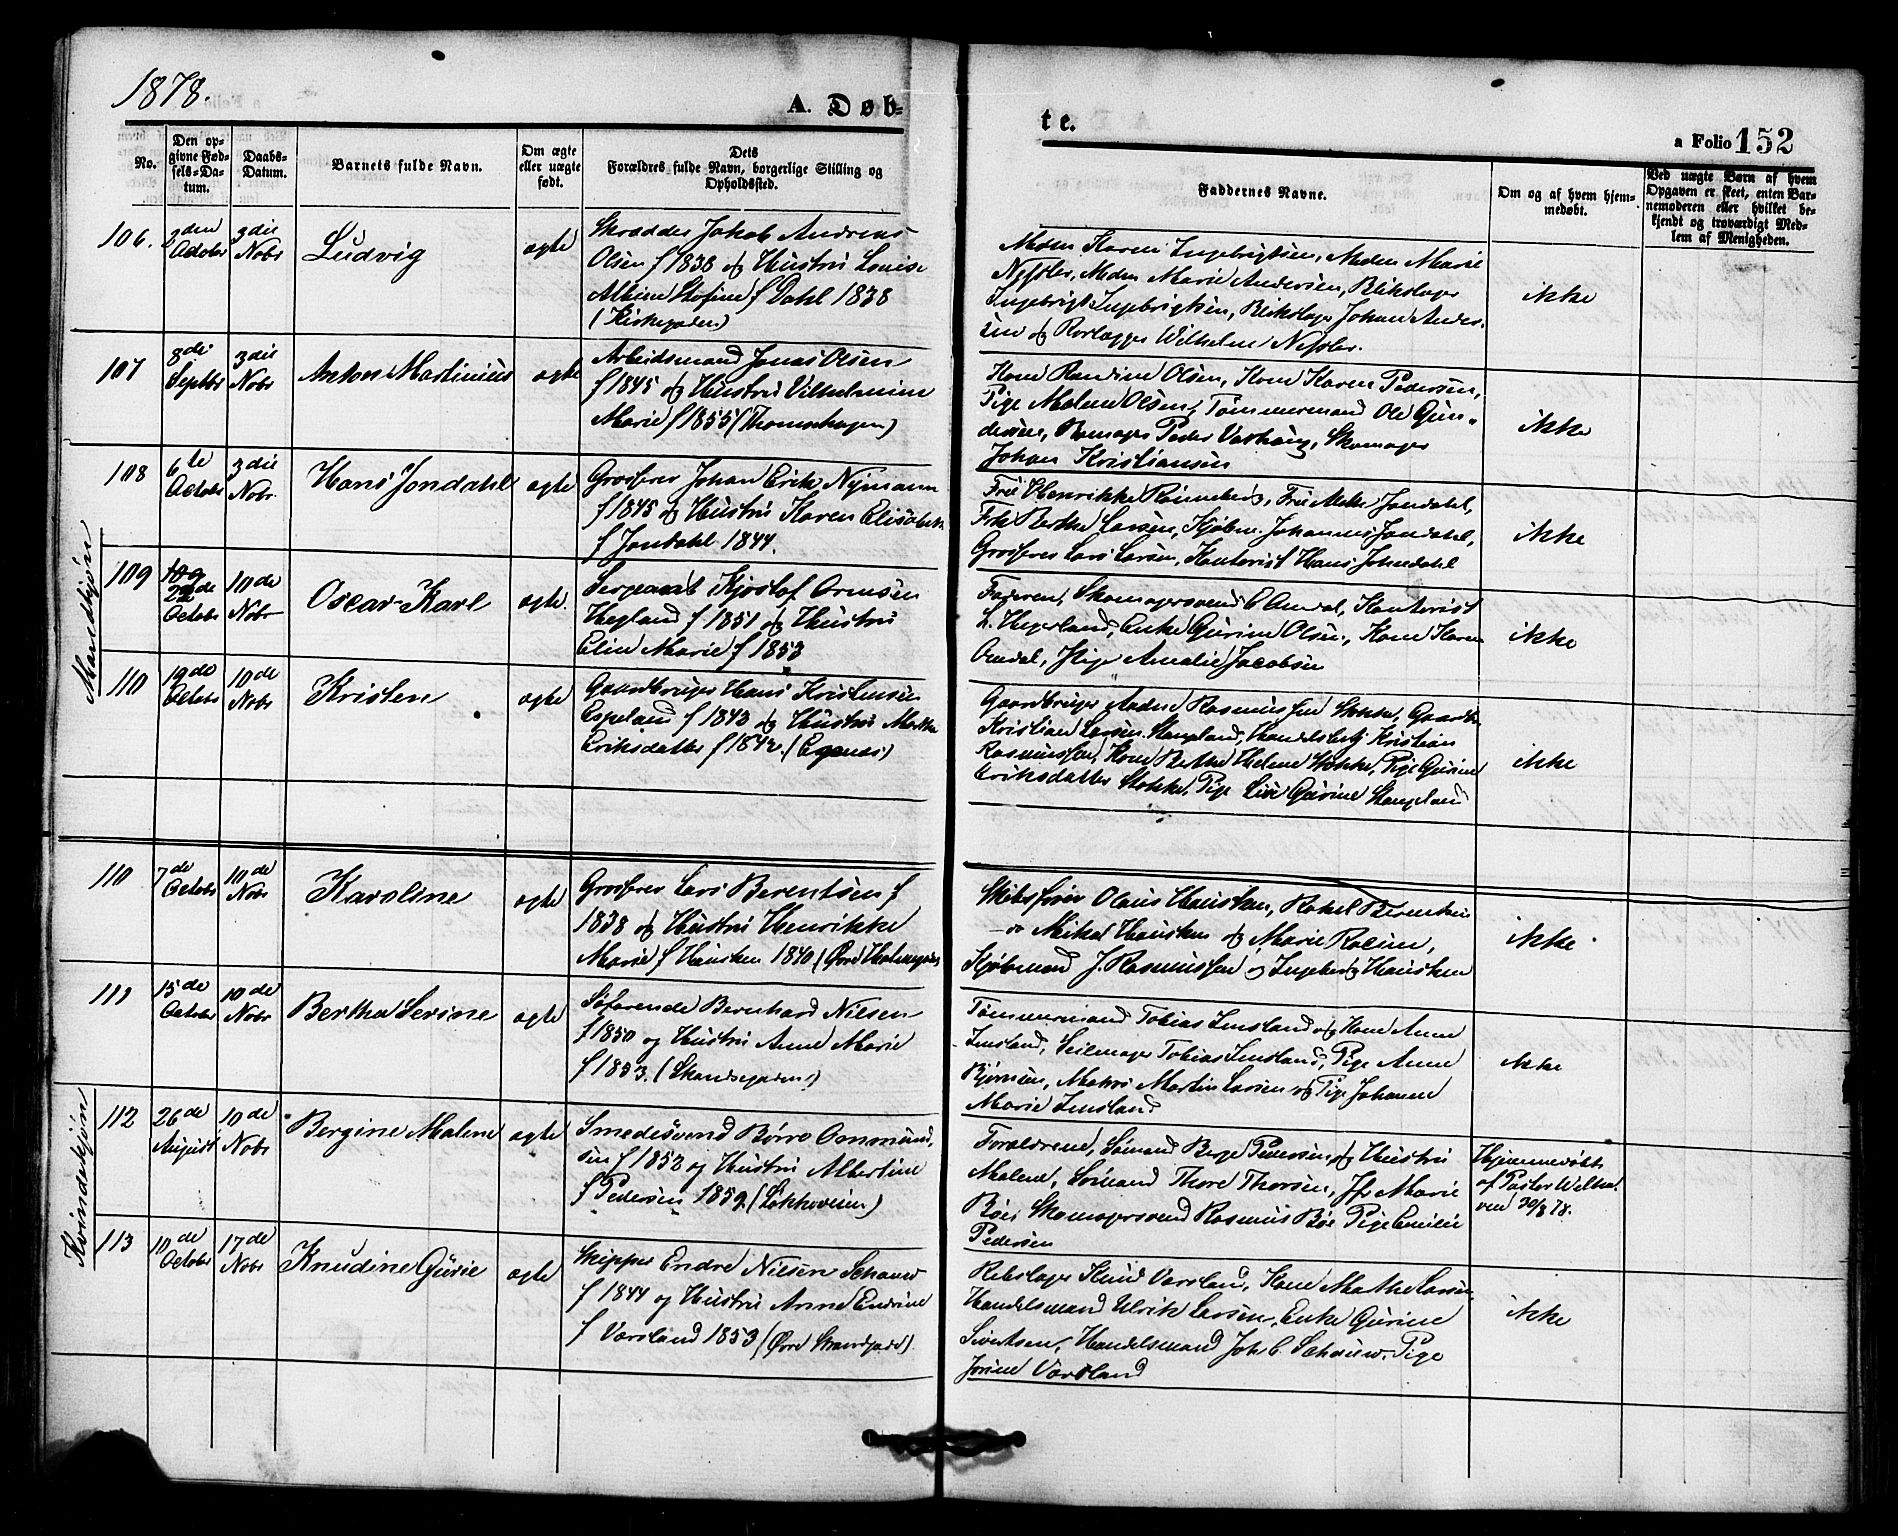 1878.
A. Døb-
te.
a Folio 152
No.
Den op-
givne Fød-
sels-Da-
tum.
Daabs-
Datum.
Barnets fulde Navn.
Om ægte
eller uægte
født.
Dets
Forældres fulde Navn, borgerlige Stilling og
Opholdssted.
Faddernes Navne.
Om og af hvem hjem-
medøbt.
Ved uægte Børn af hvem
Opgaven er skeet, enten Bar-
nemoderen eller hvilket be-
kjendt og troværdigt Med-
lem af Menigheden.
Mandkjøn
106.
Octobr
3die
Nobr
Ludvig
ægte
Skrædder Jakob Andreas
Olsen f 1838 og Hustru Louise
f Dahl 1838
(Kirkegaden)
Mdm Karen Ingebrigtsen, Mdm Marie
Nessler, Mdm Marie Andersen, Blikslager
Ingebrigt Ingebrigtsen, Blikslager Johan Ander-
sen og Rorlægger Wilhelm Nessler.
ikke
107
8de
Septbr
3die
Nobr
Anton Martinius
ægte
Arbeidsmand Jonas Olsen
f 1845 og Hustru Vilhelmine
Marie f 1855 (Thomsehagen)
Kone Randine Olsen, Kone Karen Pedersen,
Pige Malene Olsen, Tømmermand Ole Gun-
dersen, Peder Vashaug, Skomager
Johan Kristiansen
ikke
108
6te
Octobr
3die
Nobr.
Hans Jondahl
ægte
Grosserer Johan Erik Nymann
f 1845 og Hustru Karen Elisabeth
f Jondahl 1844.
Fru Henrikke Rønneberg, Fru Jondahl,
Frk Berthe Larsen, Kjøbm. Johannes Jondahl,
Grosserer Lars Larsen, Kontorist Hans Johndahl
ikke
109
109
22de
Octobr
10de
Nobr
Oscar Karl
ægte.
Sergeant Kjostof Ormsen
Hegland f 1851 og Hustru
Elin Marie f 1853
Faderen, Skomagersvend C Omdal, Kontorist
L. Hegerland, Enke Gurine Olsen, Kone Karen
Omdal, Pige Amalie Jacobsen
ikke
110
19de
Octobr
10de
Nobr
Kristen
ægte
Gaardbruger Hans Kristensen
Espeland f 1843 og Hustru Marthe
Eriksdatter f 1842. (Egenæs)
Gaardbruger Rasmussen Stokke, Gaardbr.
Kristian Larsen Stangeland, Handelsbetj Kristian
Rasmussen, Kone Berthe Helene Stokke, Pige Gurine
Eriksdatter Stokke, Pige Live Gurine Stangeland
ikke
Kvindekjøn
110
7de
Octobr
10de
Nobr
Karoline
ægte
Grosserer Lars Berentsen f
1838 og Hustru Henrikke
Marie f Hausken 1840 (Øvre Holmegade)
Skibsfører Olaus Hausken, Rakel Berentsen
Mikal Hausken og Marie Racine,
Kjøbmand J. Rasmussen og Ingeborg Hausken
ikke
111
15de
Octobr
10de
Nobr
Bertha Serine
ægte
Søfarende Bernhard Nilsen
f 1850 og Hustru Anne Marie
f 1853. (Skandsegaden)
Tømmermand Tobias Imsland og Kone Anne
Imsland, Seilmager Tobias Imsland, Pige Anne
Bjørnsen, Matros Martin Larsen og Pige Johanne
Marie Imsland
ikke
112
26de
August
10de
Nobr
Bergine Malene
ægte
Smedesvend Børre Ommund-
sen f 1852 og Hustru Albertine
f Pedersen 1859. (Løkkeveien)
Forældrene, Sømand Berge Pedersen og Hustru
Malene, Sømand Thore Thorsen, Jfr Marie
Bøe, Skomagersvend Rasmus Bøe Pige Emilie
Pedersen
Hjemmedøbt
af Pastor Welha-
ven 30/8 78.
113
10de
October
17de
Nobr
Knudine Gurie
ægte
Skipper Endre Nilsen Schauw
f 1844 og Hustru Anne Endrine
f Varsland 1853 (Øvre Strandgade).
Rebslager Knud Varsland, Kone Marthe Larsen,
Handelsmand Ulrik Larsen, Enke Gurine
Sivertsen, Handelsmand Joh C. Schauw, Pige
Josine Varsland
ikke